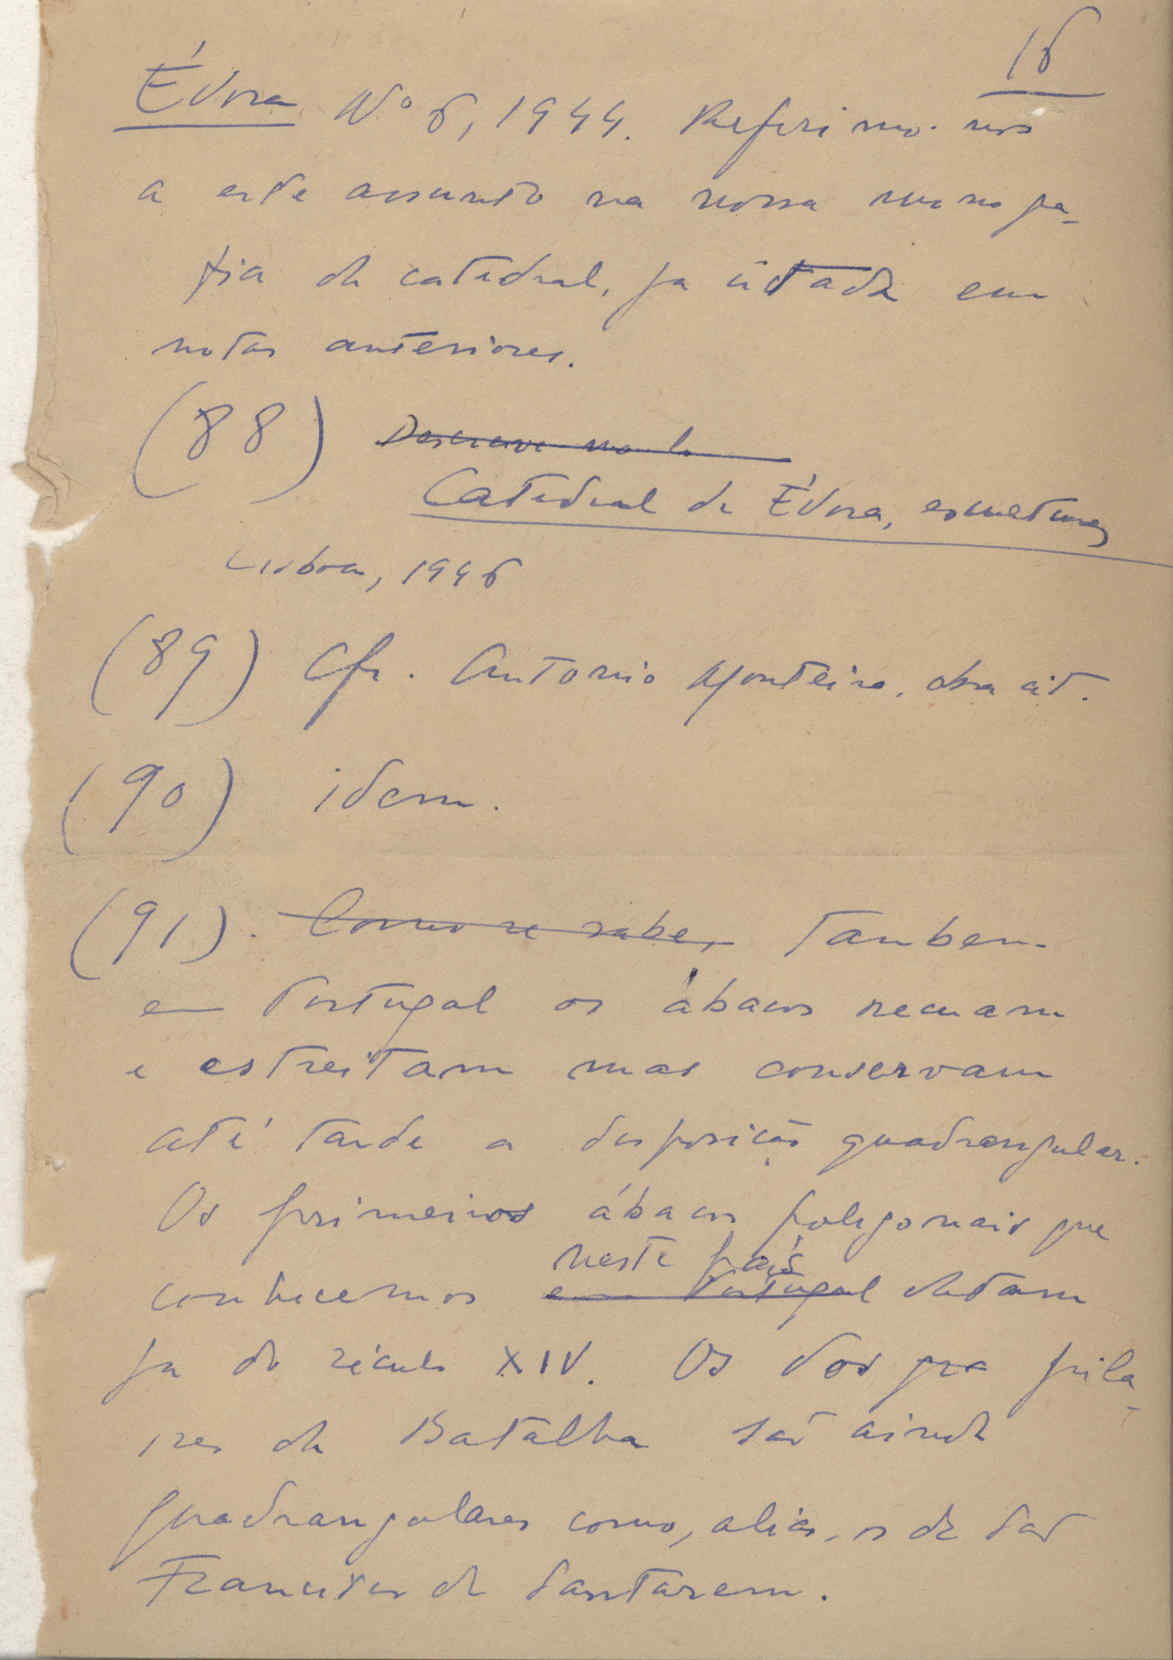 16
Évora Nº 6, 1944. Referimo-nos
a este assunto na nossa monogra-
fia da catedral, ja citada em
notas anteriores.
(88) Descreve-mo-lo
Catedral de Évora, esculturas
Lisboa, 1946
(89) Cfr. Antonio Monteiro, obra cit.
(90) idem.
(91). Como se sabe, Tambem
em Portugal os ábacos recuam
e estreitam mas conservam
até tarde a disposição quadrangular.
Os primeiros ábacos poligonais que
neste país
conhecemos em Portugal datam
ja do século XIV. Os dos pila-
res da Batalha são ainda
quadrangulares como, aliás, os de São
Francisco de Santarem.